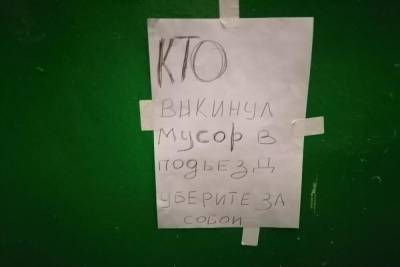 КТО
ВЫКИНУЛ
МУСОР В
ПОДЬЕЗД
УБЕРИТЕ ЗА
СОБОИ